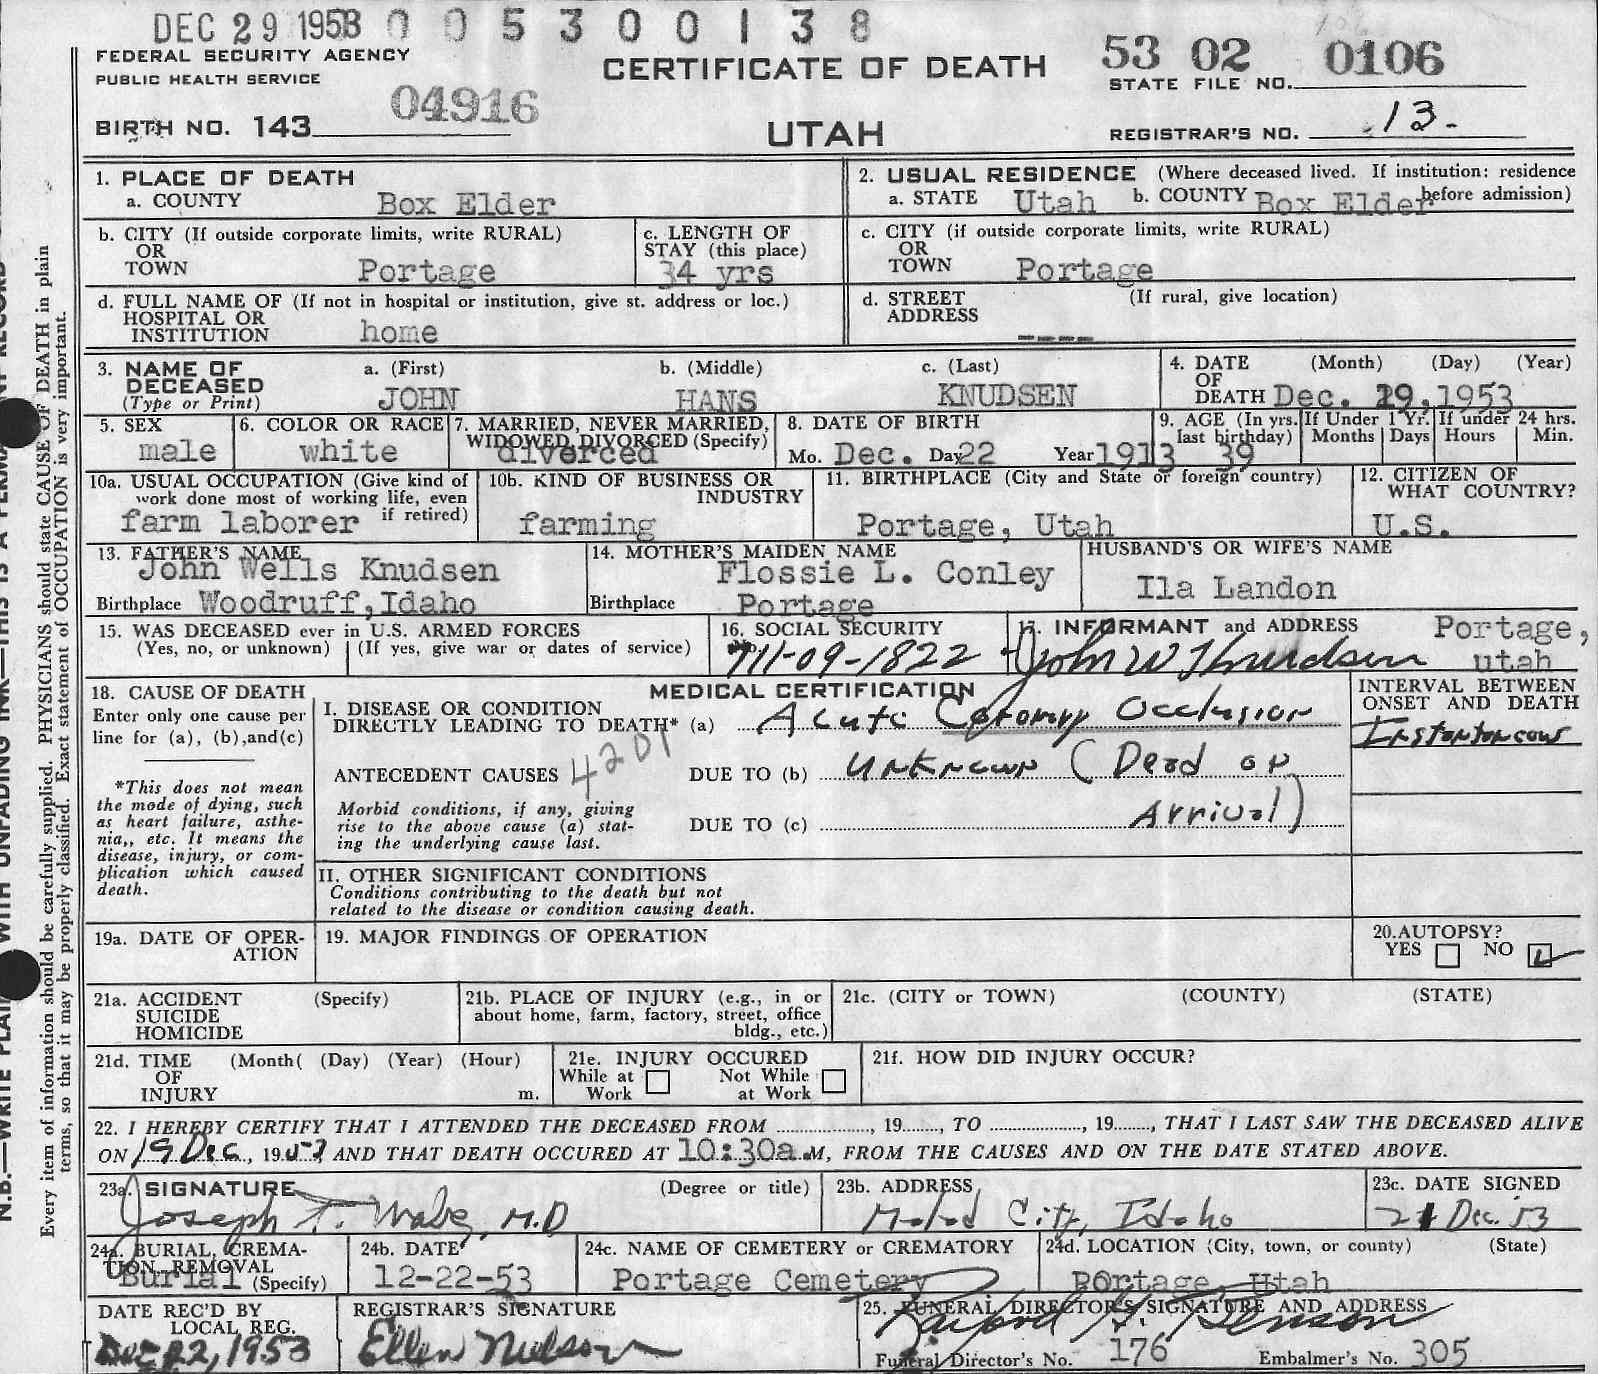 DEC 29 1953 0 0 5 3 0 0 1 3 8
FEDERAL SECURITY AGENCY
PUBLIC HEALTH SERVICE
CERTIFICATE OF DEATH
53 02 0106
STATE FILE NO.
04916
BIRTH NO. 143
UTAH
REGISTRAR'S NO. 13.
1. PLACE OF DEATH
a. COUNTY Box Elder
2. USUAL RESIDENCE (Where deceased lived. If institution: residence before admission)
a. STATE Utah b. COUNTY Box Elder
b. CITY (If outside corporate limits, write RURAL)
OR
TOWN Portage
c. LENGTH OF
STAY (this place)
34 yrs
c. CITY (if outside corporate limits, write RURAL)
OR
TOWN Portage
d. FULL NAME OF (If not in hospital or institution, give st. address or loc.)
HOSPITAL OR
INSTITUTION home
d. STREET (If rural, give location)
ADDRESS ----
3. NAME OF
DECEASED
(Type or Print)
a. (First) b. (Middle) c. (Last)
JOHN HANS KNUDSEN
4. DATE (Month) (Day) (Year)
OF
DEATH Dec. 19, 1953
5. SEX
male
6. COLOR OR RACE
white
7. MARRIED, NEVER MARRIED,
WIDOWED, DIVORCED (Specify)
diverced
8. DATE OF BIRTH
Mo. Dec. Day 22 Year 1913
9. AGE (In yrs. last birthday) 39
If Under 1 Yr. Months Days
If under 24 hrs. Hours Min.
10a. USUAL OCCUPATION (Give kind of
work done most of working life, even
if retired)
farm laborer
10b. KIND OF BUSINESS OR
INDUSTRY
farming
11. BIRTHPLACE (City and State or foreign country)
Portage, Utah
12. CITIZEN OF
WHAT COUNTRY?
U.S.
13. FATHER'S NAME
John Wells Knudsen
Birthplace Woodruff, Idaho
14. MOTHER'S MAIDEN NAME
Flossie L. Conley
Birthplace Portage
HUSBAND'S OR WIFE'S NAME
Ila Landon
15. WAS DECEASED ever in U.S. ARMED FORCES
(Yes, no, or unknown) (If yes, give war or dates of service)
16. SOCIAL SECURITY
No.
711-09-1822
17. INFORMANT and ADDRESS
John W Knudsen
Portage,
utah
18. CAUSE OF DEATH
Enter only one cause per
line for (a), (b), and (c)
*This does not mean
the mode of dying, such
as heart failure, asthe-
nia,, etc. It means the
disease, injury, or com-
plication which caused
death.
MEDICAL CERTIFICATION
I. DISEASE OR CONDITION
DIRECTLY LEADING TO DEATH* (a) Acute Coronary Occlusion
4201
ANTECEDENT CAUSES DUE TO (b) Unknown (Dead on
Morbid conditions, if any, giving
rise to the above cause (a) stat-
ing the underlying cause last.
DUE TO (c) Arrival)
INTERVAL BETWEEN
ONSET AND DEATH
Instantaneous
II. OTHER SIGNIFICANT CONDITIONS
Conditions contributing to the death but not
related to the disease or condition causing death.
19a. DATE OF OPER-
ATION
19. MAJOR FINDINGS OF OPERATION
20. AUTOPSY?
YES NO
21a. ACCIDENT (Specify)
SUICIDE
HOMICIDE
21b. PLACE OF INJURY (e.g., in or
about home, farm, factory, street, office
bldg., etc.)
21c. (CITY or TOWN) (COUNTY) (STATE)
21d. TIME (Month( (Day) (Year) (Hour)
OF
INJURY m.
21e. INJURY OCCURED
While at Work Not While at Work
21f. HOW DID INJURY OCCUR?
22. I HEREBY CERTIFY THAT I ATTENDED THE DECEASED FROM ............, 19......, TO ............, 19......, THAT I LAST SAW THE DECEASED ALIVE
ON 19 Dec, 1953 AND THAT DEATH OCCURED AT 10:30a.M, FROM THE CAUSES AND ON THE DATE STATED ABOVE.
23a. SIGNATURE (Degree or title)
Joseph T. M.D
23b. ADDRESS
Malad City, Idaho
23c. DATE SIGNED
21 Dec. 53
24a. BURIAL, CREMA-
TION, REMOVAL
Burial (Specify)
24b. DATE
12-22-53
24c. NAME OF CEMETERY or CREMATORY
Portage Cemetery
24d. LOCATION (City, town, or county) (State)
POrtage, Utah
DATE REC'D BY
LOCAL REG.
Dec 22, 1953
REGISTRAR'S SIGNATURE
Ellen Nielson
25. FUNERAL DIRECTOR'S SIGNATURE AND ADDRESS
Benson
Funeral Director's No. 176 Embalmer's No. 305
WITH UNFADING INK—THIS IS A
N.B.—WRITE
Every item of information should be carefully supplied. PHYSICIANS should state CAUSE OF DEATH in plain
terms, so that it may be properly classified. Exact statement of OCCUPATION is very important.